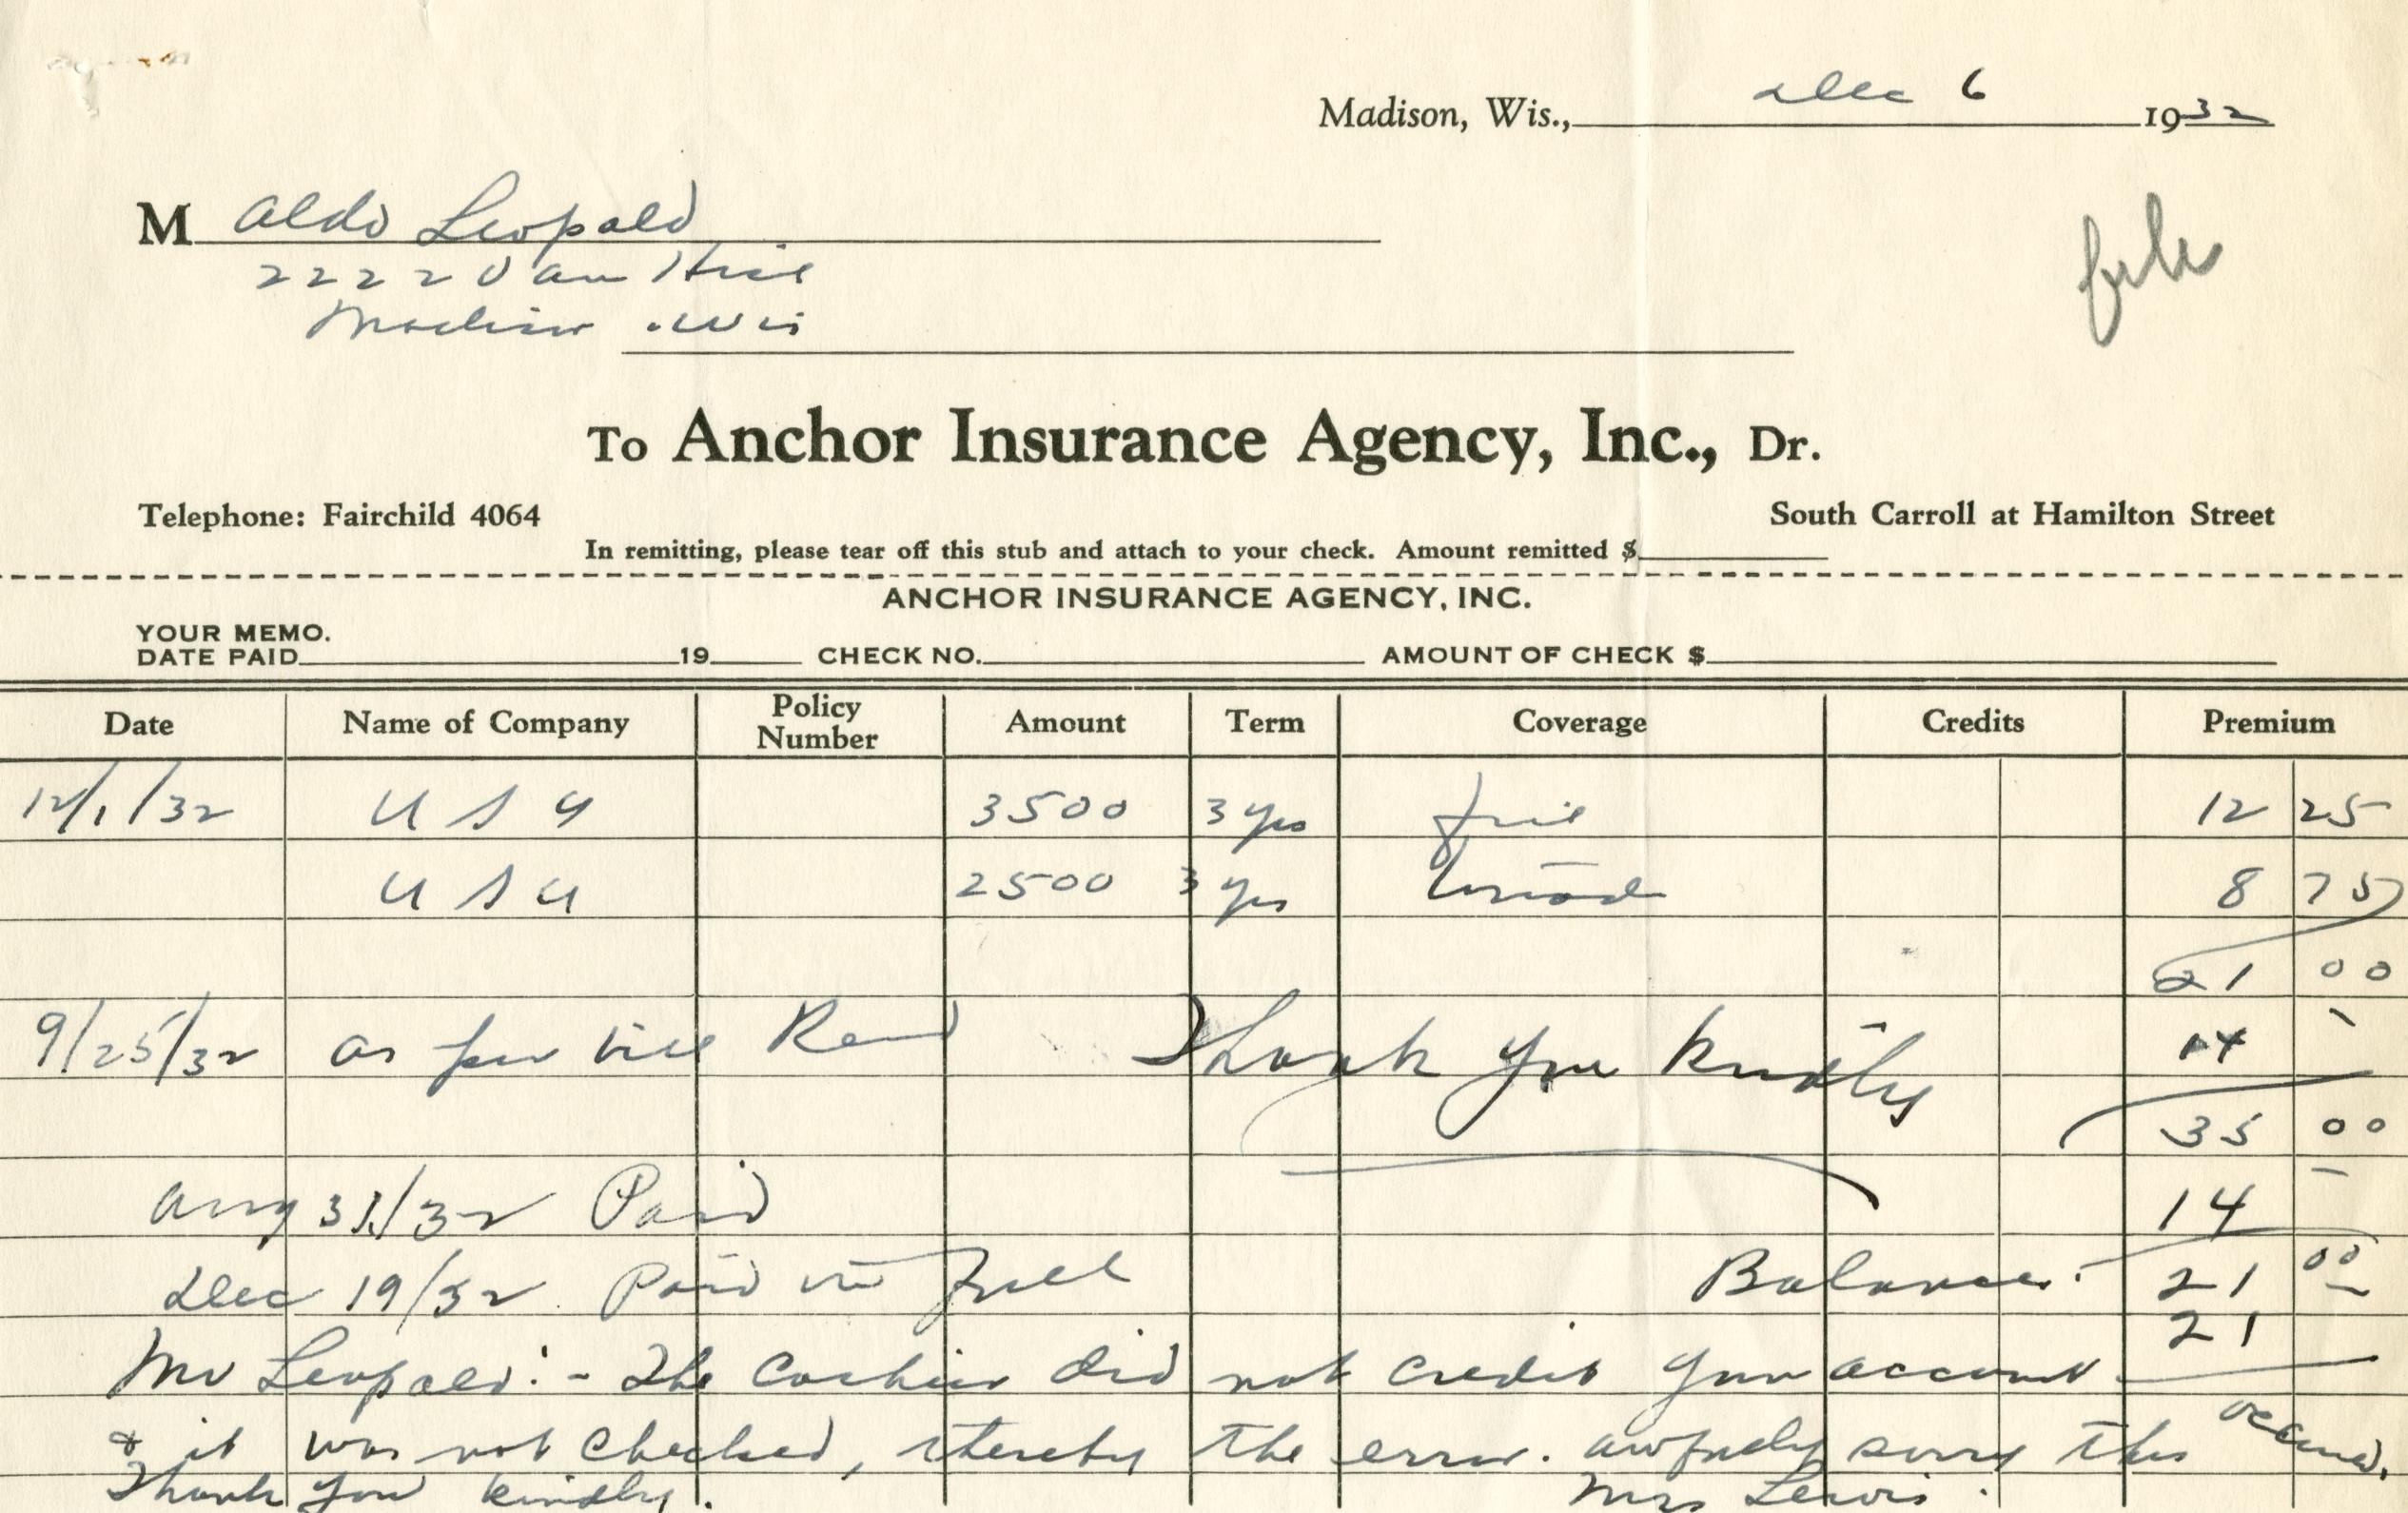 Madison, Wis., Dec 6 1932
M Aldo Leopold
222 2 Van Hise
Madison . Wis
file
To Anchor Insurance Agency, Inc., Dr.
Telephone: Fairchild 4064 South Carroll at Hamilton Street
In remitting, please tear off this stub and attach to your check. Amount remitted $
ANCHOR INSURANCE AGENCY, INC.
YOUR MEMO.
DATE PAID 19 CHECK NO. AMOUNT OF CHECK $
Date Name of Company Policy Number Amount Term Coverage Credits Premium
12/1/32 3500 3 yrs fire 12 25
2500 3 yrs 8 75
21 00
9/25/32 as per bill Rend Thank you kindly 14 -
35 00
Aug 31/32 Paid 14 -
Dec 19/32 Paid in Full Balance. 21 00
21
Mr Leopold: - The Cashier did not credit your account
& it was not checked, thereby the error. awfully sorry this occurred.
Thank you kindly. Mrs Lewis.